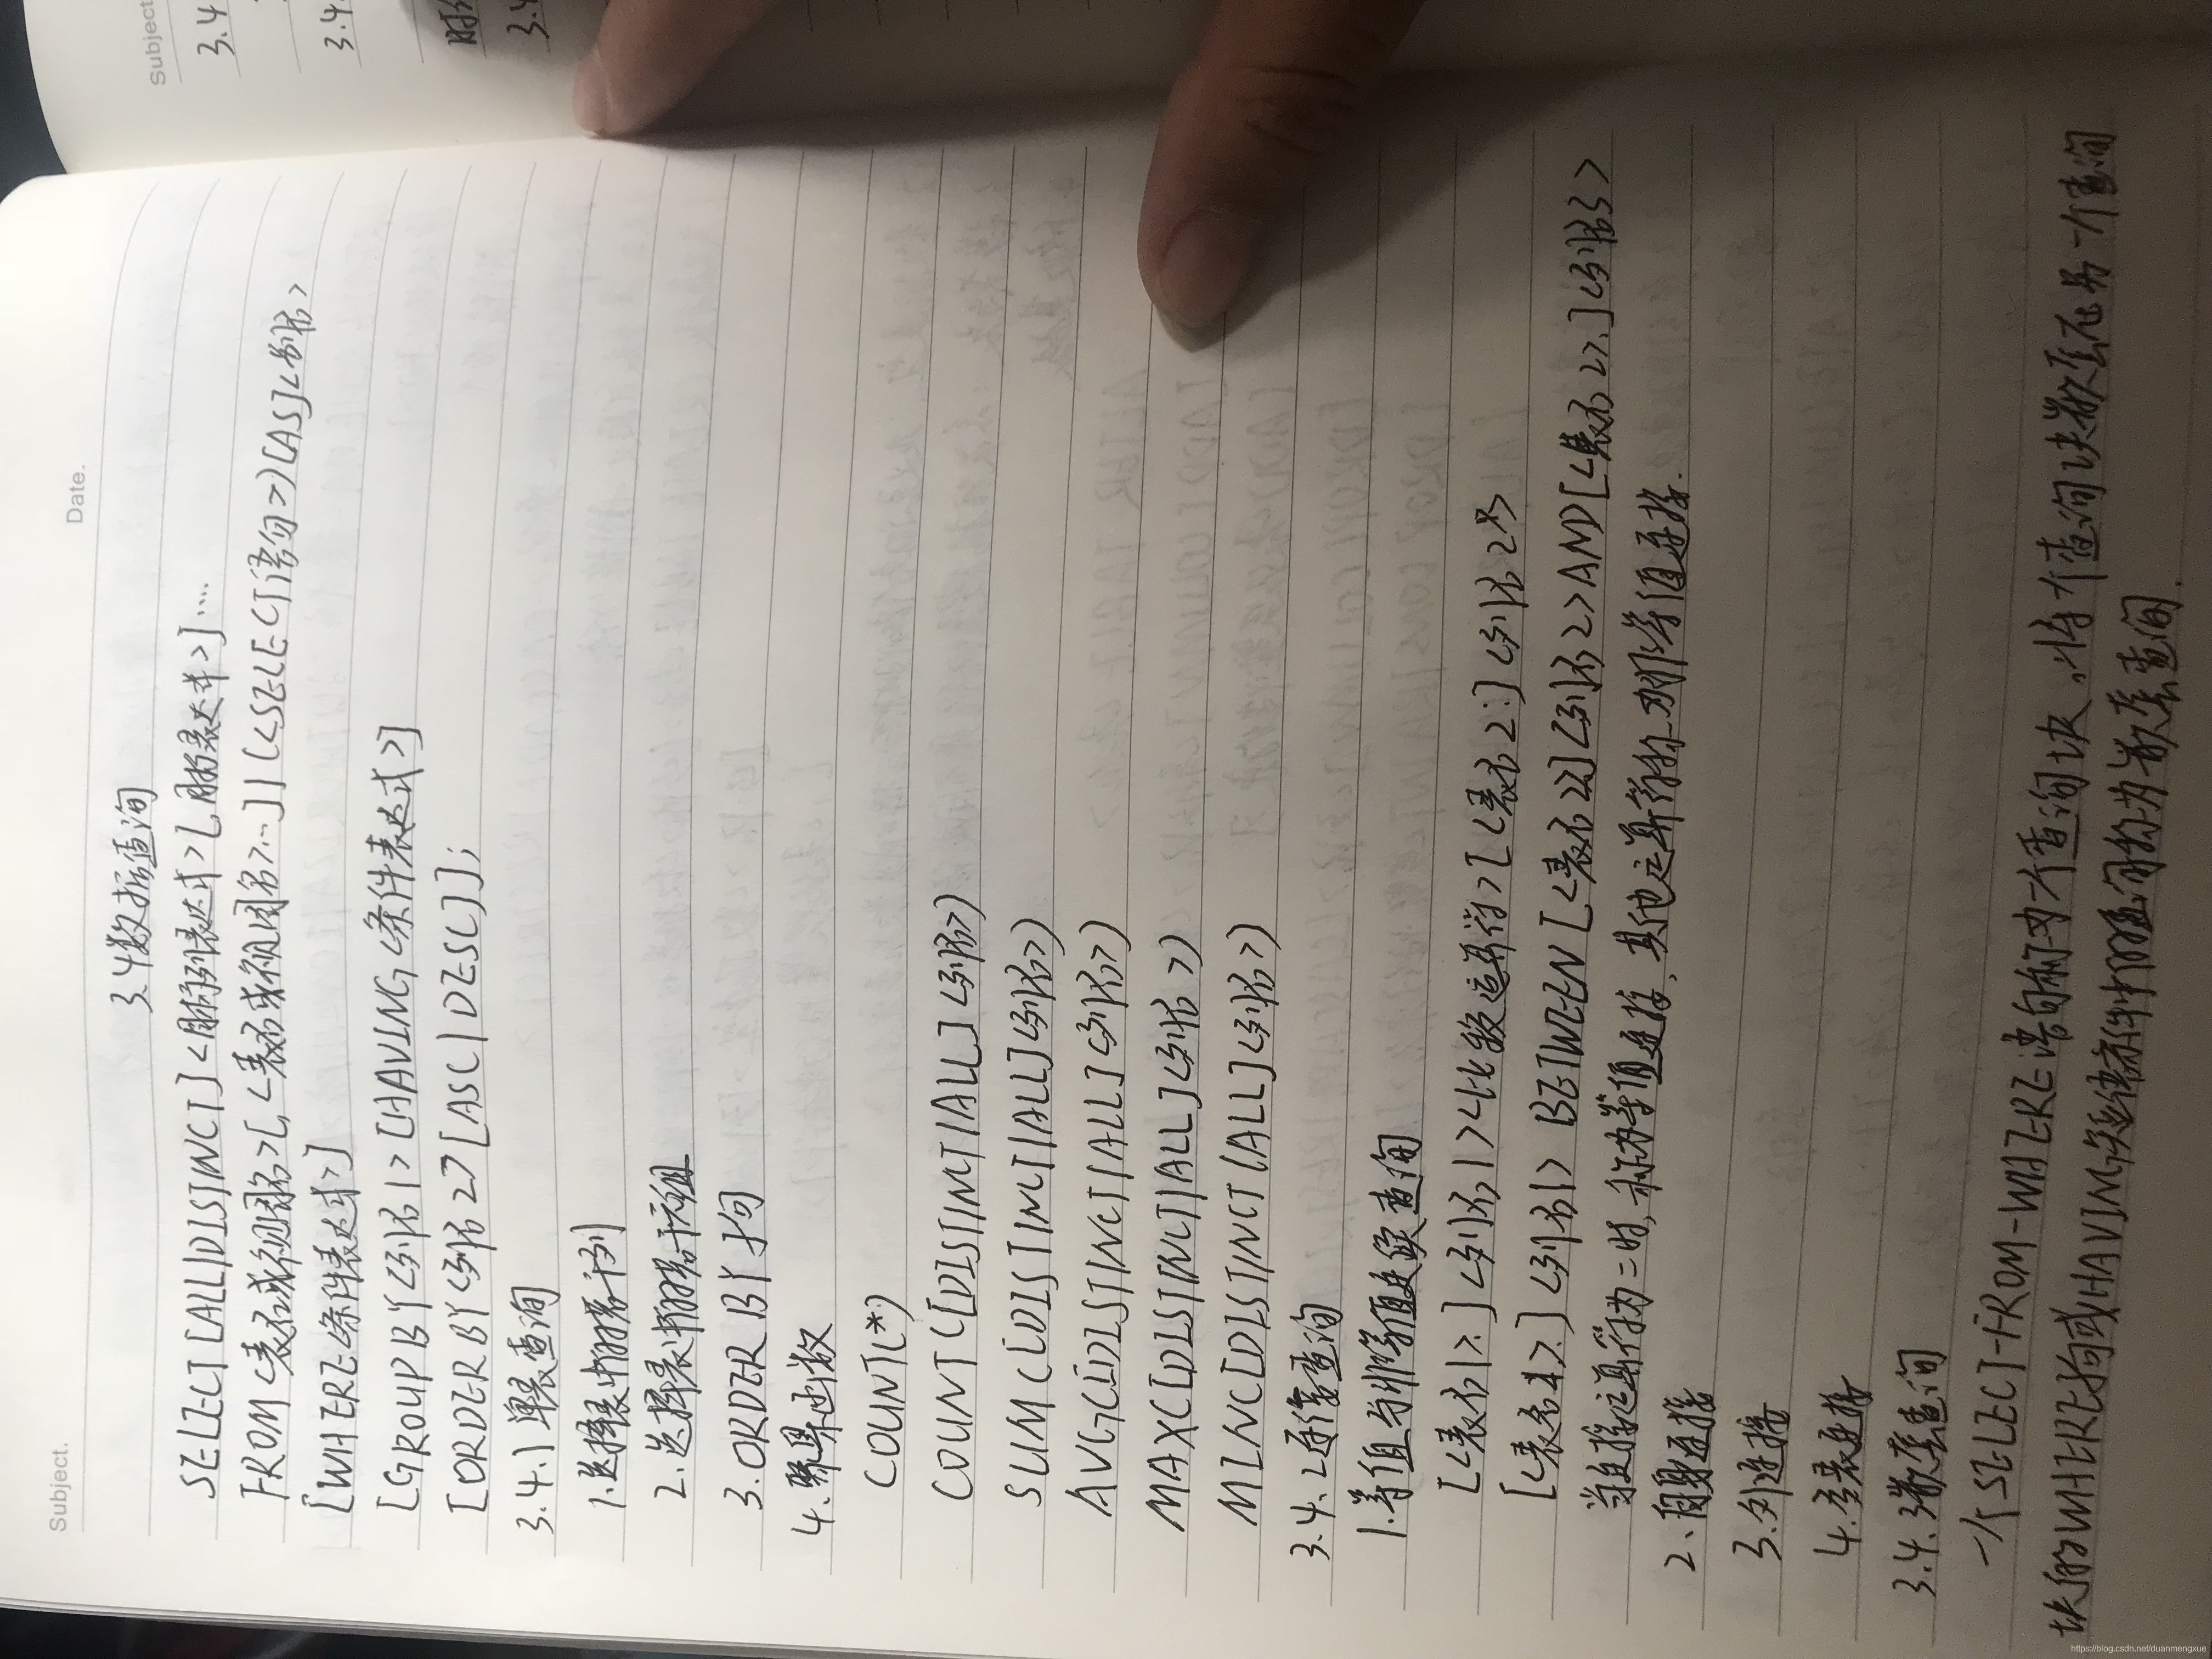 Subject.
Date.
3.4数据查询
SELECT [ALL|DISTINCT] <目标列表达式> [,目标表达式>]....
FROM <表名或视图名>[,<表名或视图名>...] | (<SELECT语句>)[AS]<别名>
[WHERE<条件表达式>]
[GROUP BY <列名1> [HAVING <条件表达式>]
[ORDER BY <列名2> [ASC|DESC]];
3.4.1 单表查询
1.选择表中的若干列
2.选择表中的若干元组
3.ORDER BY子句
4.聚集函数
COUNT(*)
COUNT([DISTINCT|ALL] <列名>)
SUM([DISTINCT|ALL] <列名>)
AVG([DISTINCT|ALL] <列名>)
MAX([DISTINCT|ALL] <列名>)
MIN([DISTINCT|ALL] <列名>)
3.4.2连接查询
1.等值与非等值连接查询
[<表名1>.] <列名1> <比较运算符> [<表名2.] <列名2>
[<表名1>.] <列名1> BETWEEN [<表名2>.] <列名2> AND [<表名2>.] <列名3>
当连接运算符为=时,称为等值连接,其他运算符称为非等值连接.
2.自身连接
3.外连接
4.多表连接
3.4.3嵌套查询
一个SELECT-FROM-WHERE语句称为一个查询块,将一个查询块嵌套在另一个查询
块的WHERE子句或HAVING短语条件中的查询称为嵌套查询.
Subject
3.4
3.4.
3.4
https://blog.csdn.net/duanmengxue